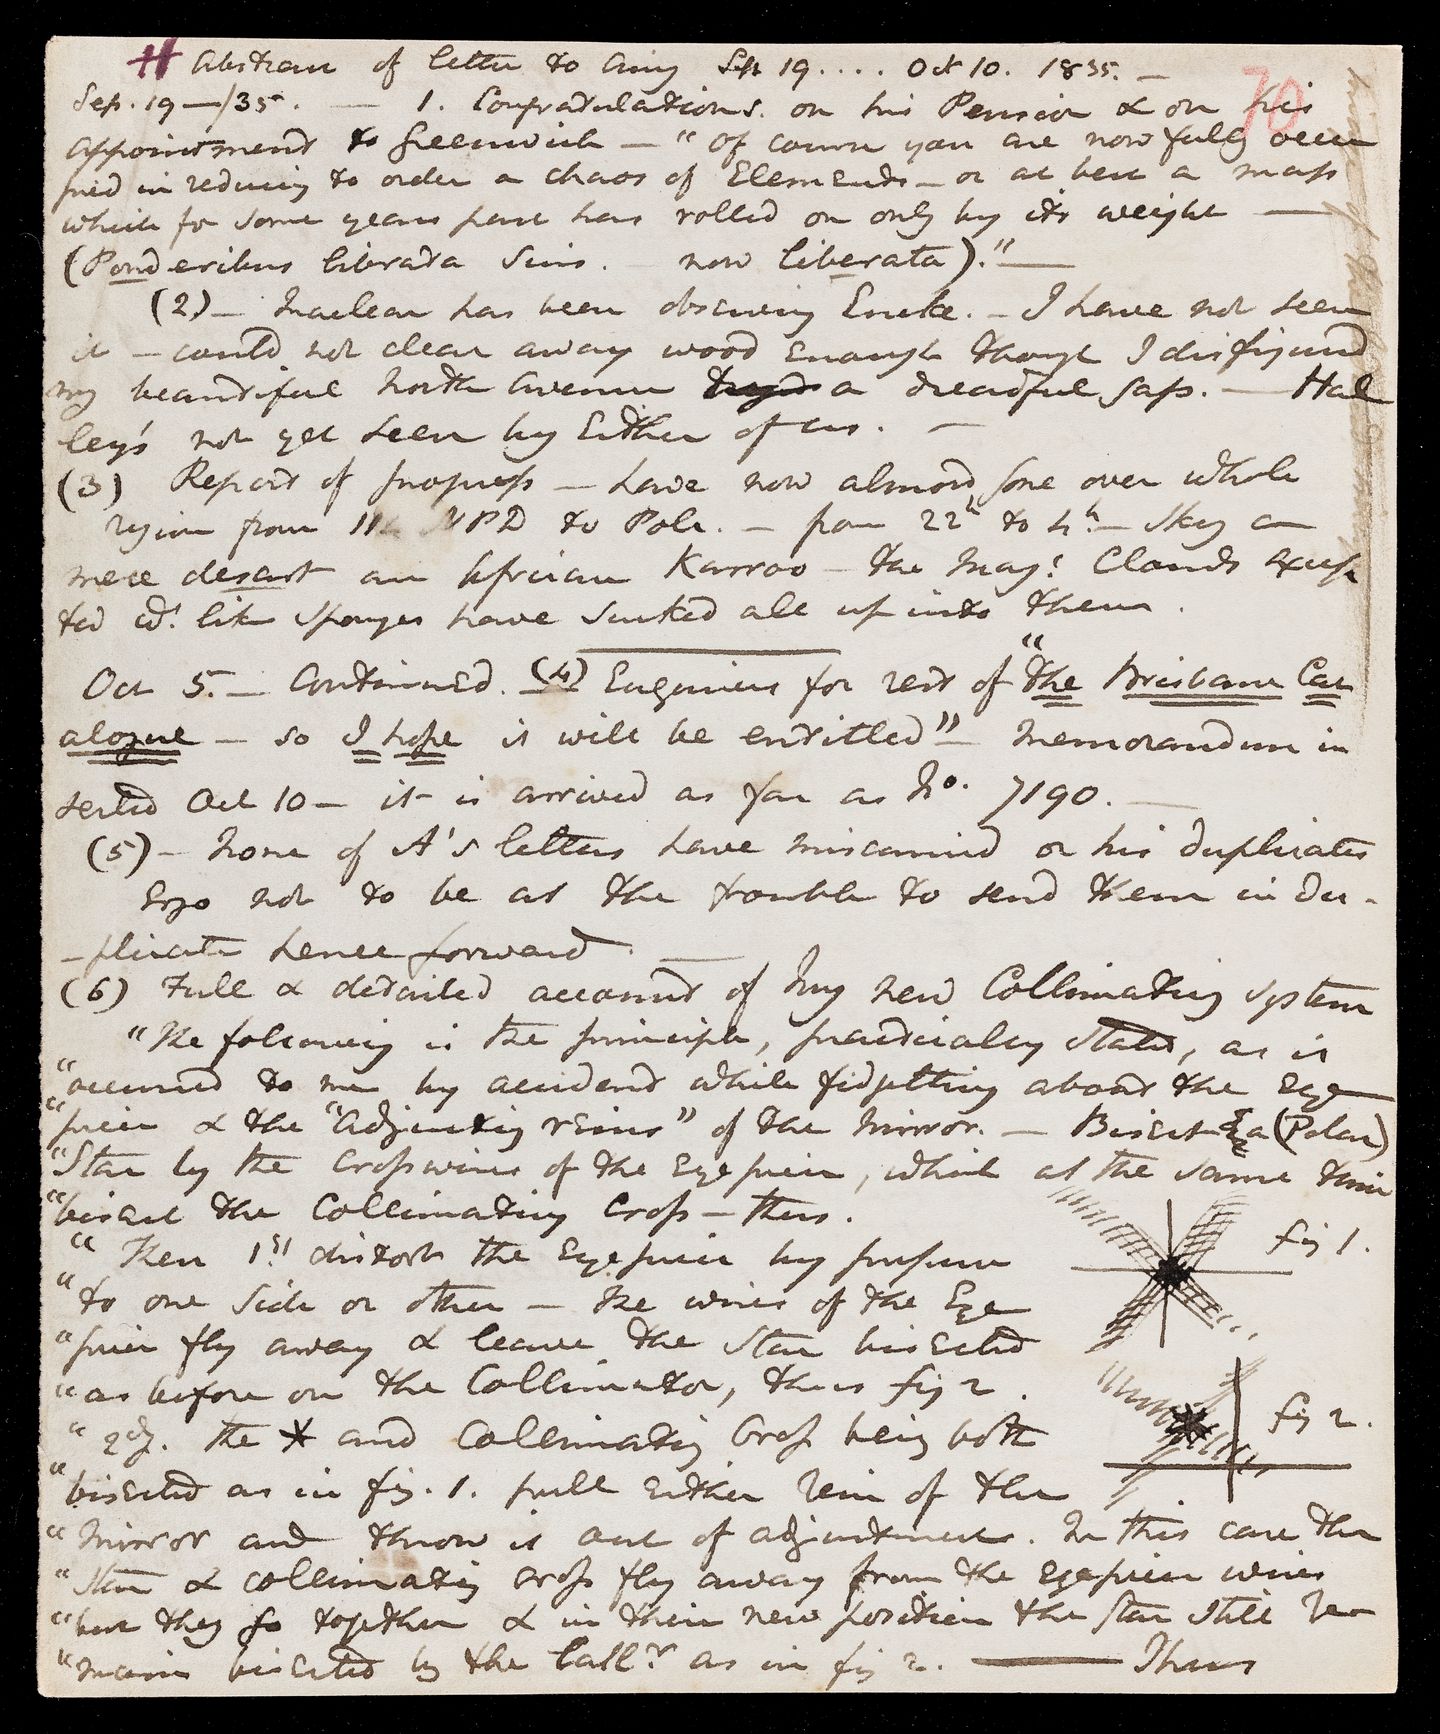 H Abstract of letter to Airy Sep 19 .... Oct 10. 1835. —
70
Sep. 19—/35. — 1. Congratulations. on his Pension & on his
appointment to Greenwich — "of course you are now fully occu
pied in reducing to order a chaos of Elements — or at best a mass
which for some years past has rolled on only by its weight —
(Ponderibus librata suis. now liberata)."—
(2) — Maclear has been observing Encke. — I have not seen
it — could not clear away wood enough though I disfigured
my beautiful North Avenue a dreadful gap. — Hal
ley's not yet seen by Either of us. —
(3) Report of progress — have now almost gone over whole
region from NPD to Pole. — from 22h to 4h. — Sky a
mere desart an African Karroo — the Mag! Clouds
ted wd. like sponges have sucked all up into them.
Oct 5. — Continued. (4) Enquiries for rest of "the Brisbane Cat
alogue — so I hope it will be entitled" — Memorandum in
serted Oct 10 — it is arrived as far as No. 7190. —
(5) — None of A's letters have miscarried or his duplicates
Ergo not to be at the trouble to send them in du-
-plicate henceforward. —
(6) Full & detailed account of my new Collimating system
"The following is the principle, practically stated, as it
"occurred to me by accident while fidgetting about the Eye
"piece & the "Adjusting reins" of the Mirror. — Bisect a (Polar)
"Star by the cross wires of the Eyepiece, which at the same time
"bisect the Collimating Cross — thus.
"Then 1st. distort the Eyepiece by pressure
fig 1.
"to one side or other — the wires of the Eye
"piece fly away & leave the star bisected
"as before on the Collimator, thus fig 2.
"2dly. the * and Collimating Cross being both
fig 2.
"bisected as in fig. 1. pull either rein of the
"mirror and throw it out of adjustment. In this case the
"star & collimating cross fly away from the eyepiece wires
"but they go together & in their new position the star still re
"mains bisected by the Collr. as in fig 2. — Thus